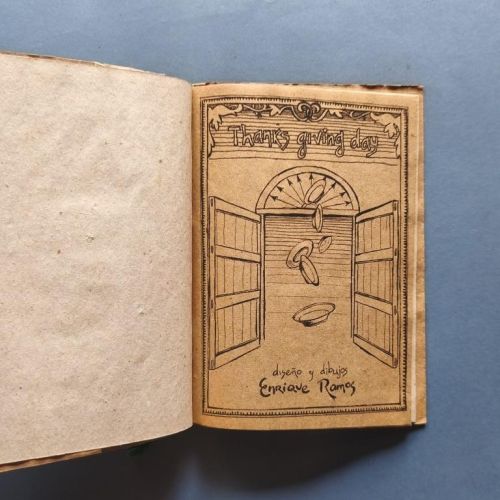 Thanks giving day
diseño y dibujos
Enrique Ramos